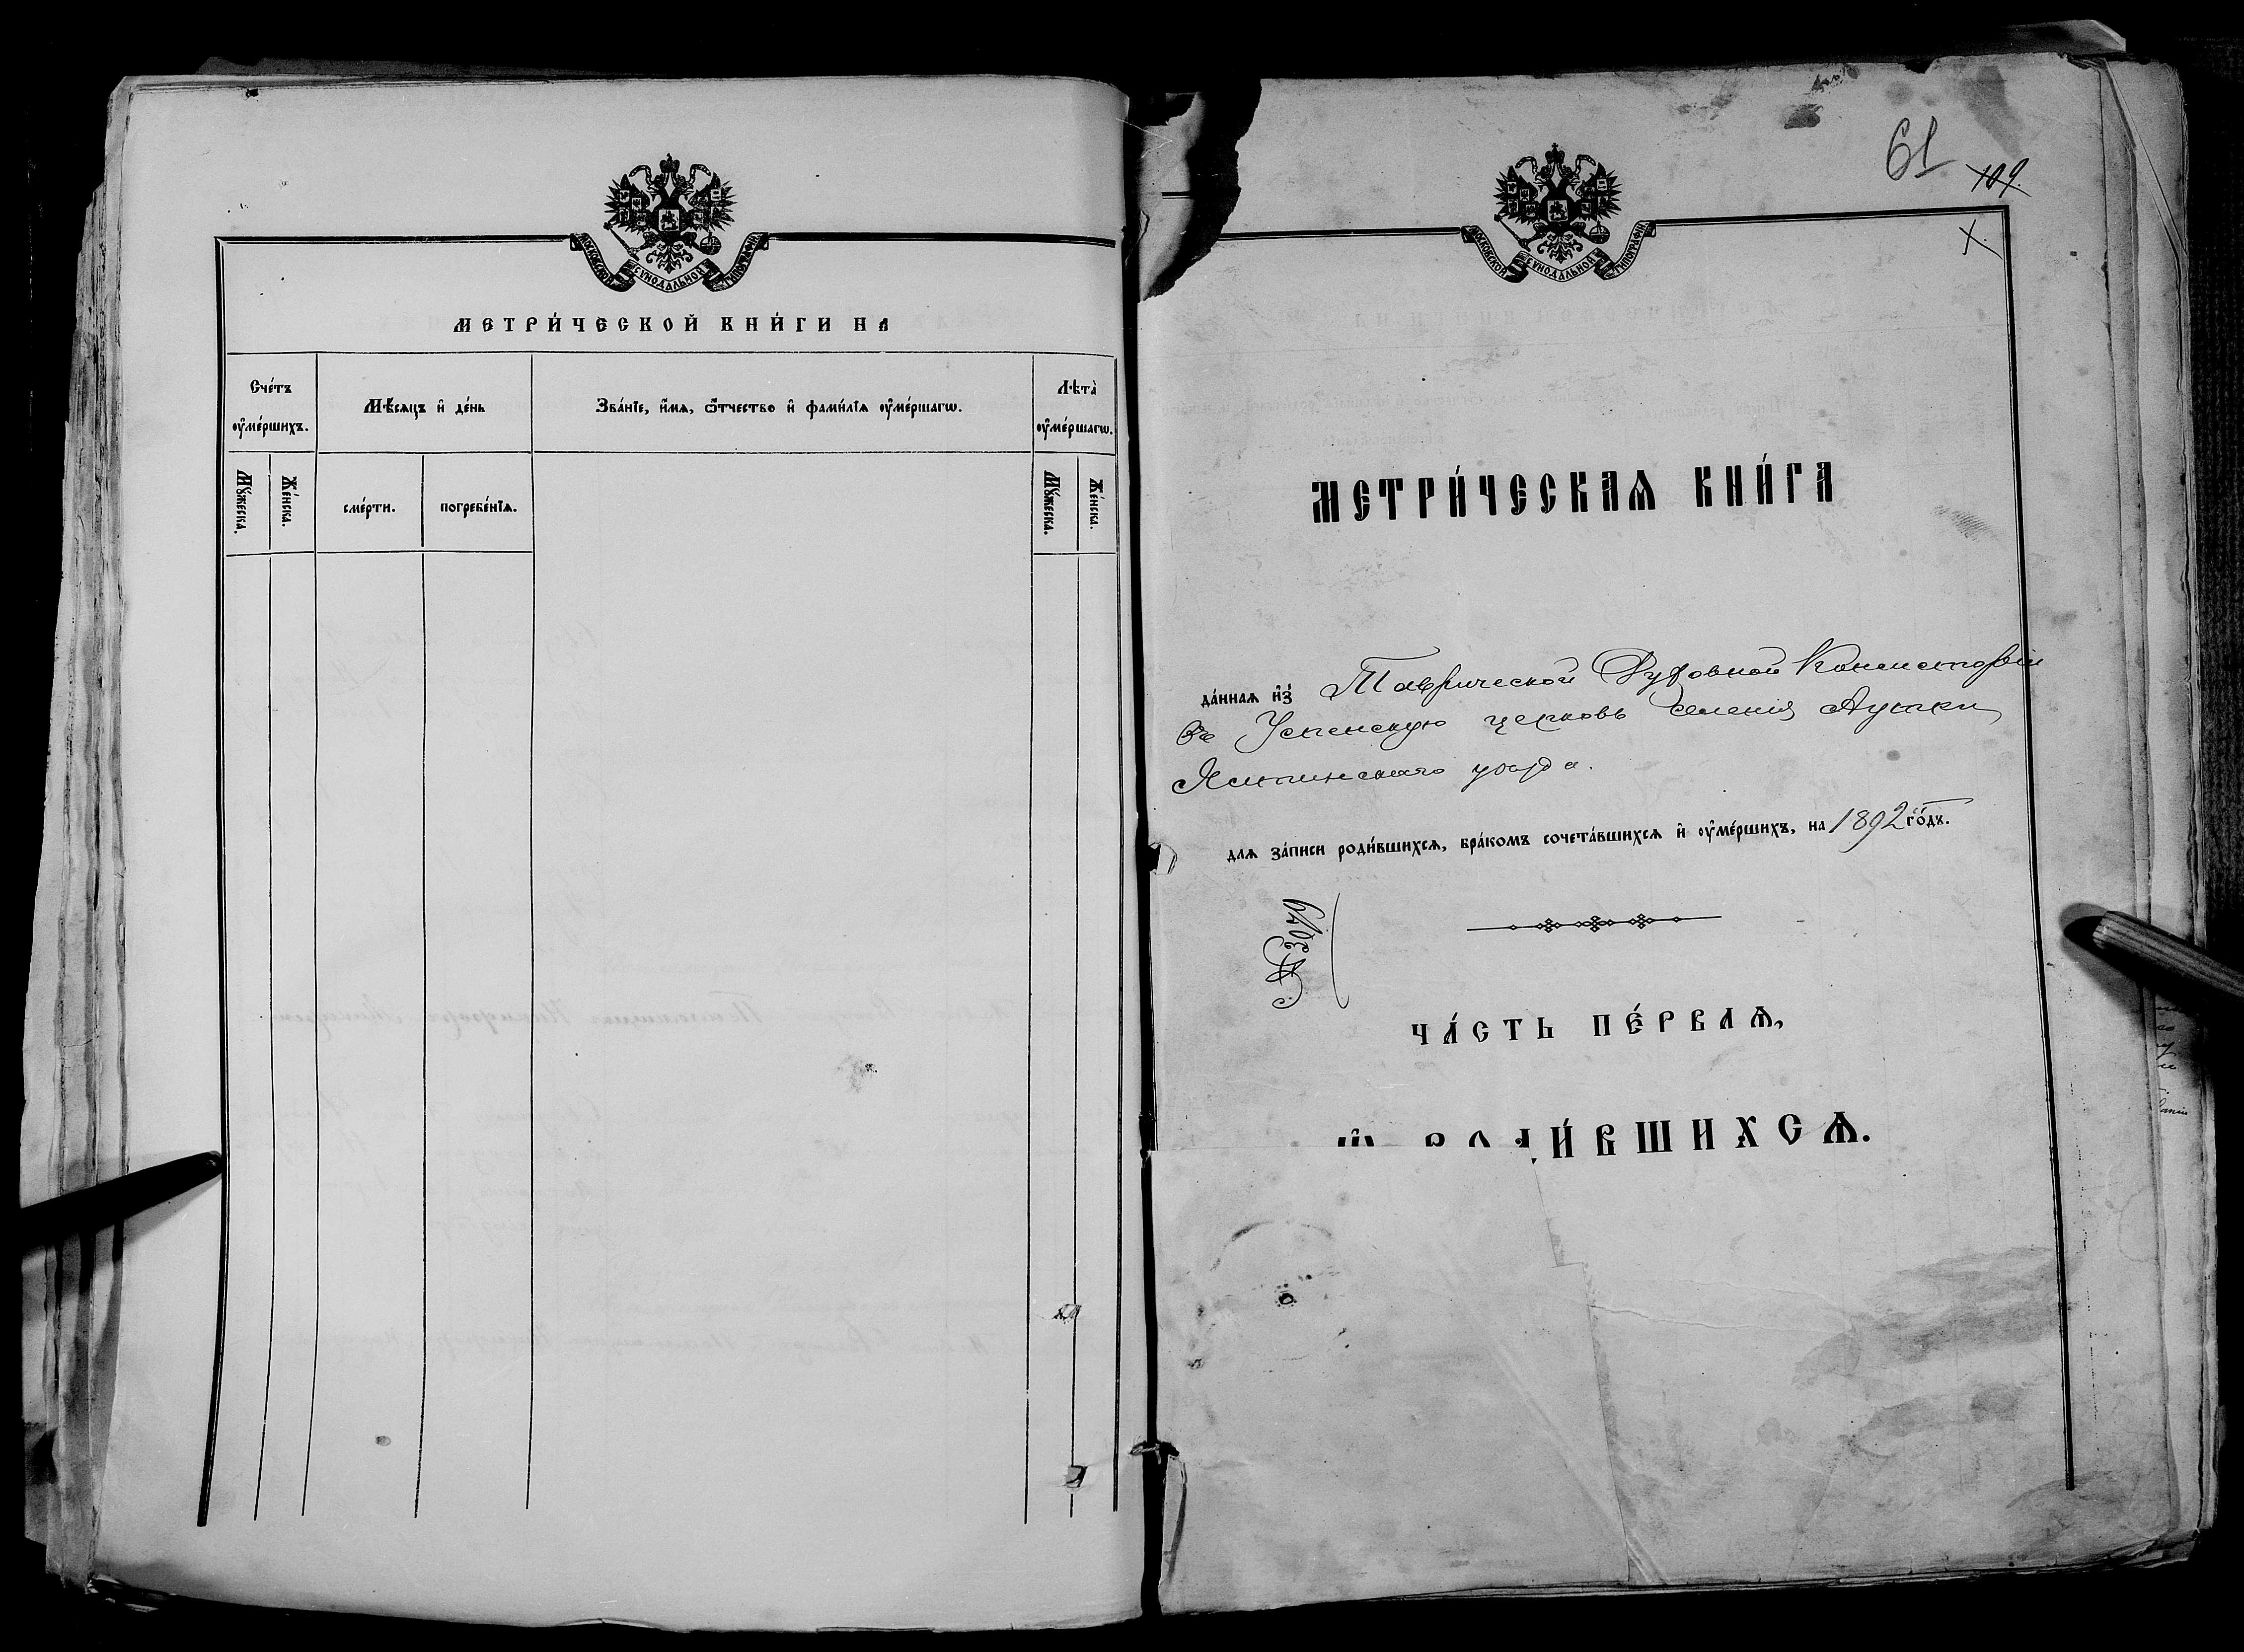 МОСКОВСКОЙ СѴНОДАЛЬНОЙ ТИПОГРАФІИ
МЕТРИ́ЧЕСКОЙ КНИ́ГИ НА
Сче́тъ ᲂу҆ме́ршихъ.
Мѣ́сяцъ и҆ де́нь
Зва́нїе, и҆́мя, ѻ҆́тчество и҆ фами́лїя ᲂу҆ме́ршагѡ.
Лѣ́та ᲂу҆ме́ршагѡ.
Мꙋ́жеска.
Же́нска.
сме́рти.
погребе́нїѧ.
Мꙋ́жеска.
Же́нска.
61
109.
X.
МОСКОВСКОЙ СѴНОДАЛЬНОЙ ТИПОГРАФІИ
МЕТРИ́ЧЕСКАѦ КНИ́ГА
да́ннаѧ и҆з̾ Таврической Духовной Консисторіи
въ Успенскую церковь селенія Аутки
Ялтинскаго уѣзда.
длѧ за́писи роди́вшихсѧ, бра́комъ сочета́вшихсѧ и҆ ᲂу҆ме́ршихъ, на 1892 го́дъ.
№ 3049
ЧА́СТЬ ПЕ́РВАѦ,
Ѡ҆ РОДИ́ВШИХСѦ.